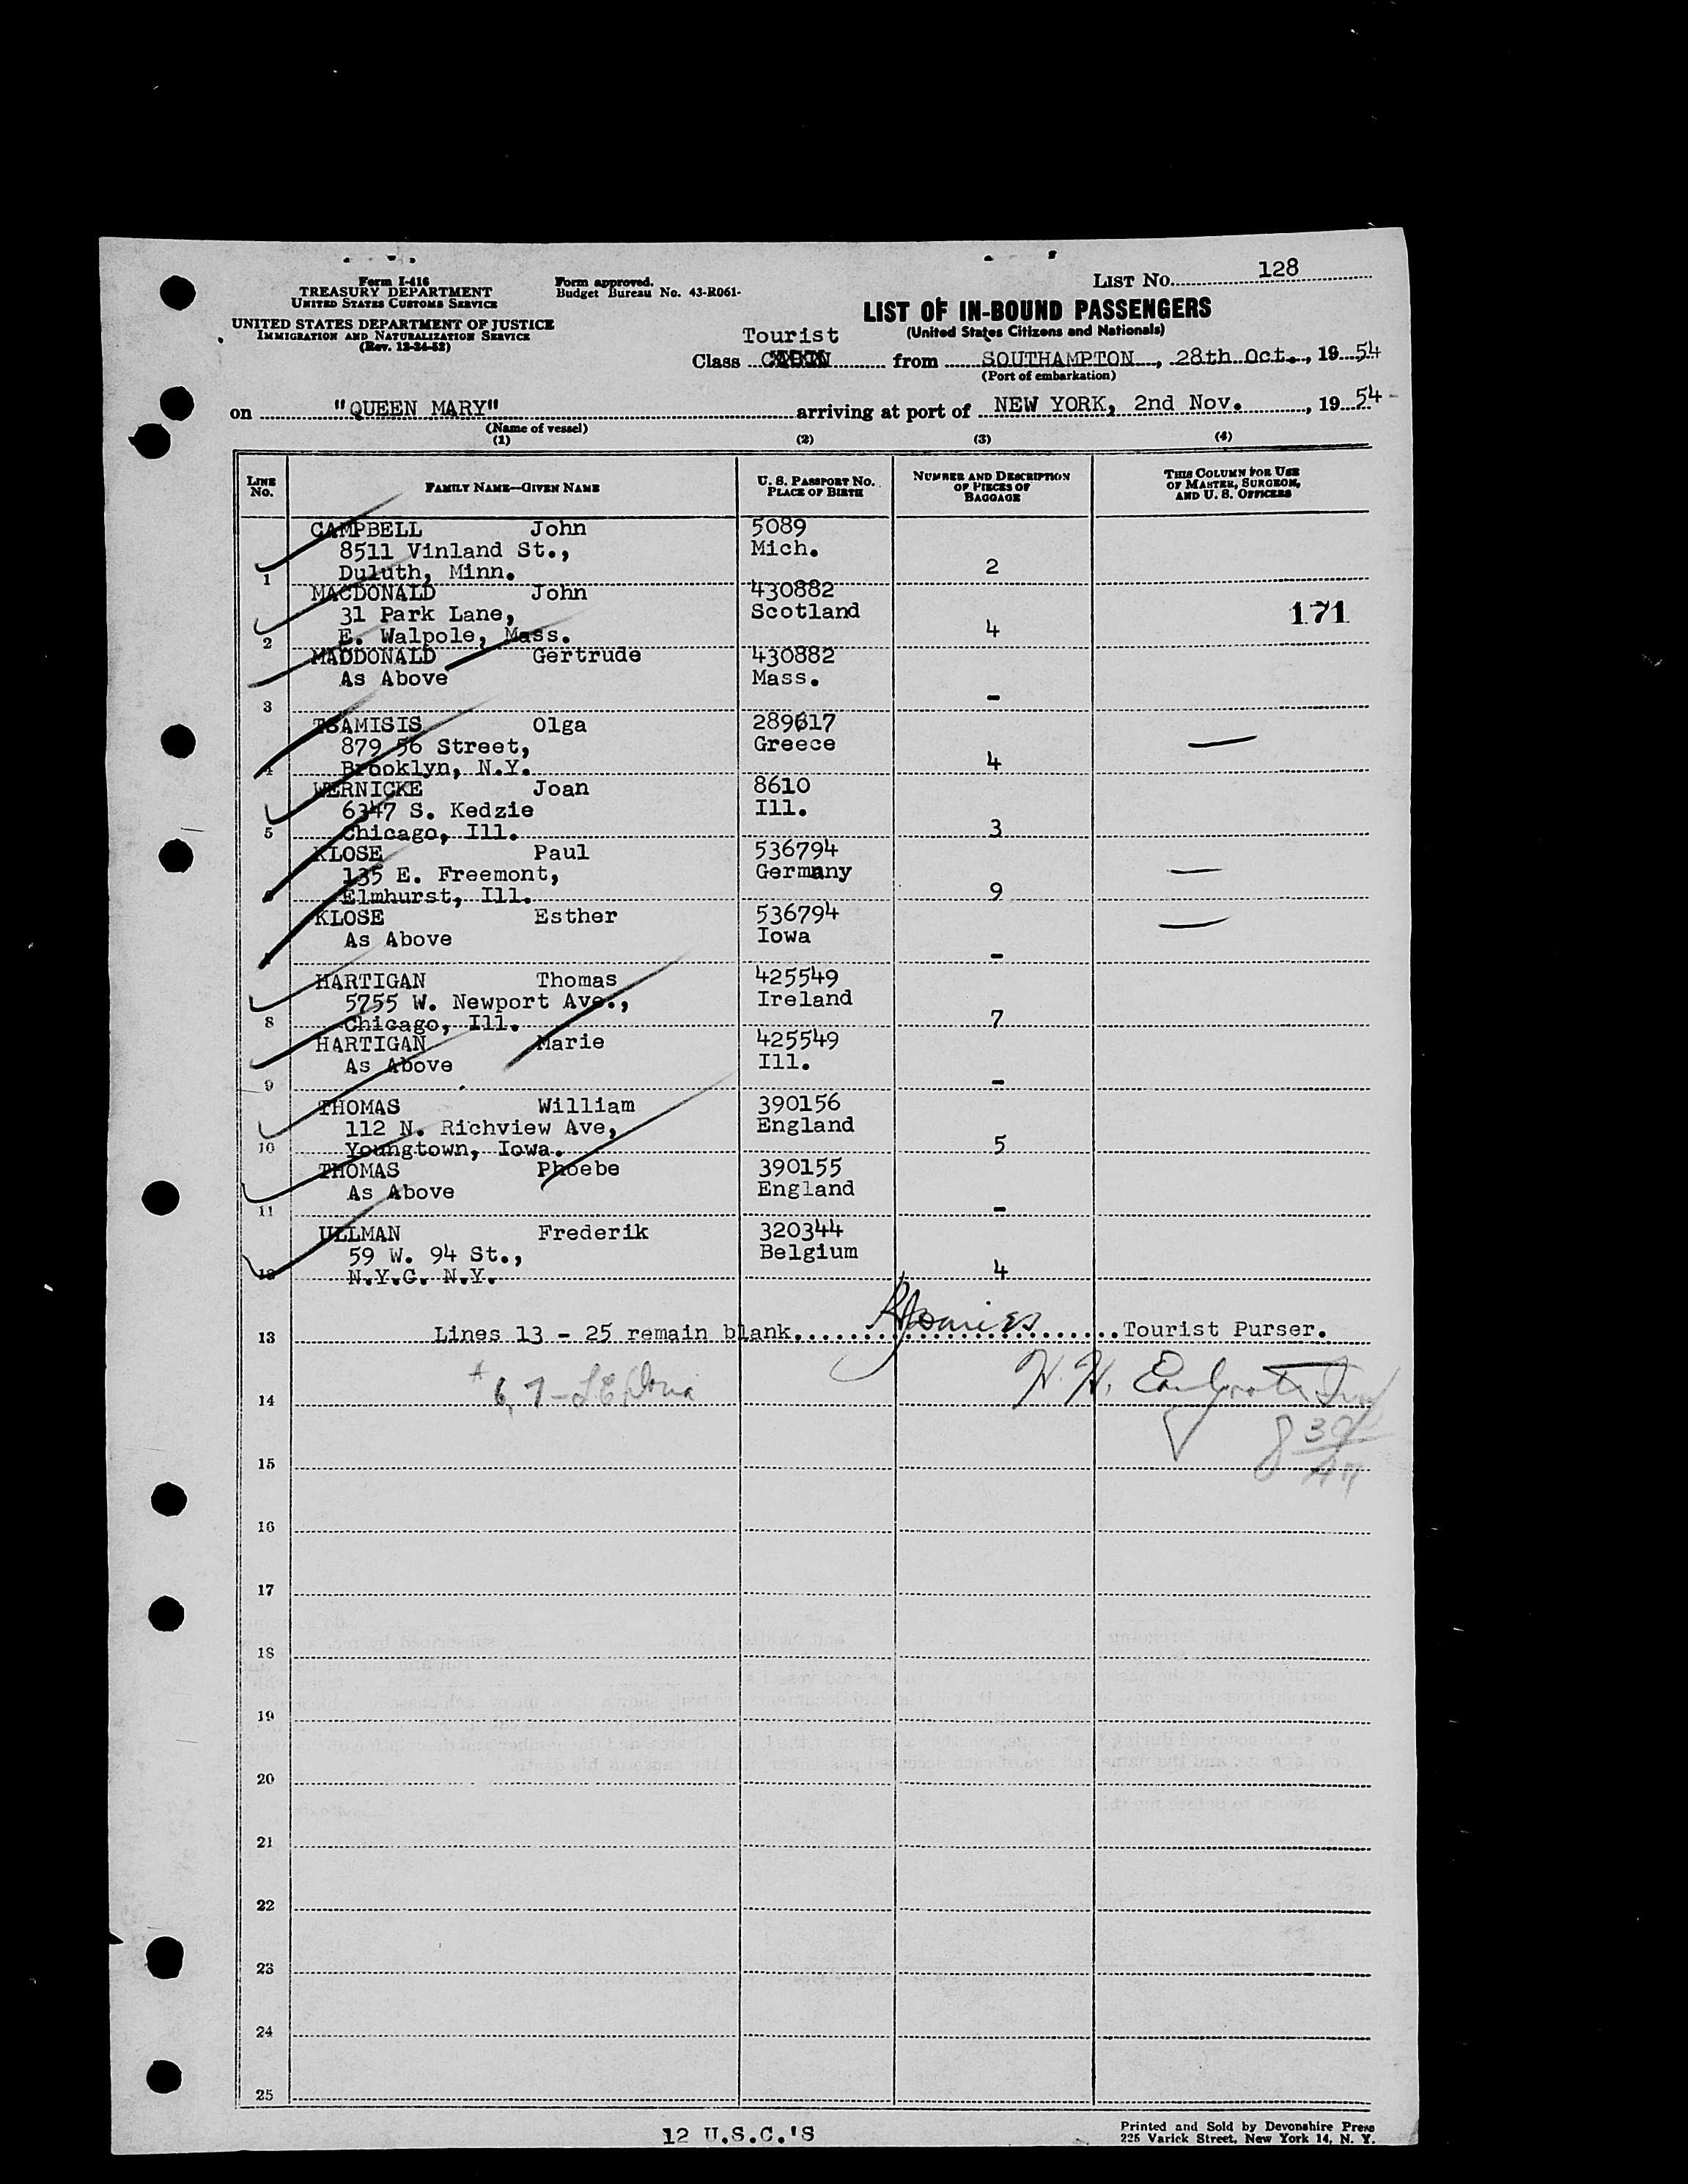 LIST No. 128
Form I-416
TREASURY DEPARTMENT
UNITED STATES CUSTOMS SERVICE
Form approved.
Budget Bureau No. 43-R061-
UNITED STATES DEPARTMENT OF JUSTICE
IMMIGRATION AND NATURALIZATION SERVICE
(Rev. 12-24-52)
LIST OF IN-BOUND PASSENGERS
(United States Citizens and Nationals)
Tourist
Class CABIN from SOUTHAMPTON, 28th Oct., 1954
(Port of embarkation)
on "QUEEN MARY" arriving at port of NEW YORK, 2nd Nov., 1954
(Name of vessel)
(1) (2) (3) (4)
LINE No. FAMILY NAME—GIVEN NAME U. S. PASSPORT No. PLACE OF BIRTH NUMBER AND DESCRIPTION OF PIECES OF BAGGAGE THIS COLUMN FOR USE OF MASTER, SURGEON, AND U. S. OFFICERS
CAMPBELL John 5089
8511 Vinland St., Mich.
1 Duluth, Minn. 2
MACDONALD John 430882
31 Park Lane, Scotland 171
2 E. Walpole, Mass. 4
MADDONALD Gertrude 430882
As Above Mass.
3 -
TSAMISIS Olga 289617
879 56 Street, Greece
4 Brooklyn, N.Y. 4
WERNICKE Joan 8610
6347 S. Kedzie Ill.
5 Chicago, Ill. 3
KLOSE Paul 536794
135 E. Freemont, Germany
6 Elmhurst, Ill. 9
KLOSE Esther 536794
As Above Iowa
-
HARTIGAN Thomas 425549
5755 W. Newport Ave., Ireland
8 Chicago, Ill. 7
HARTIGAN Marie 425549
As Above Ill.
9 -
THOMAS William 390156
112 N. Richview Ave, England
10 Youngtown, Iowa. 5
THOMAS Phoebe 390155
As Above England
11 -
ULLMAN Frederik 320344
59 W. 94 St., Belgium
12 N.Y.C. N.Y. 4
13 Lines 13 - 25 remain blank. Tourist Purser.
6, 7 -
14
15
16
17
18
19
20
21
22
23
24
25
12 U.S.C.'S
Printed and Sold by Devonshire Press
225 Varick Street, New York 14, N. Y.